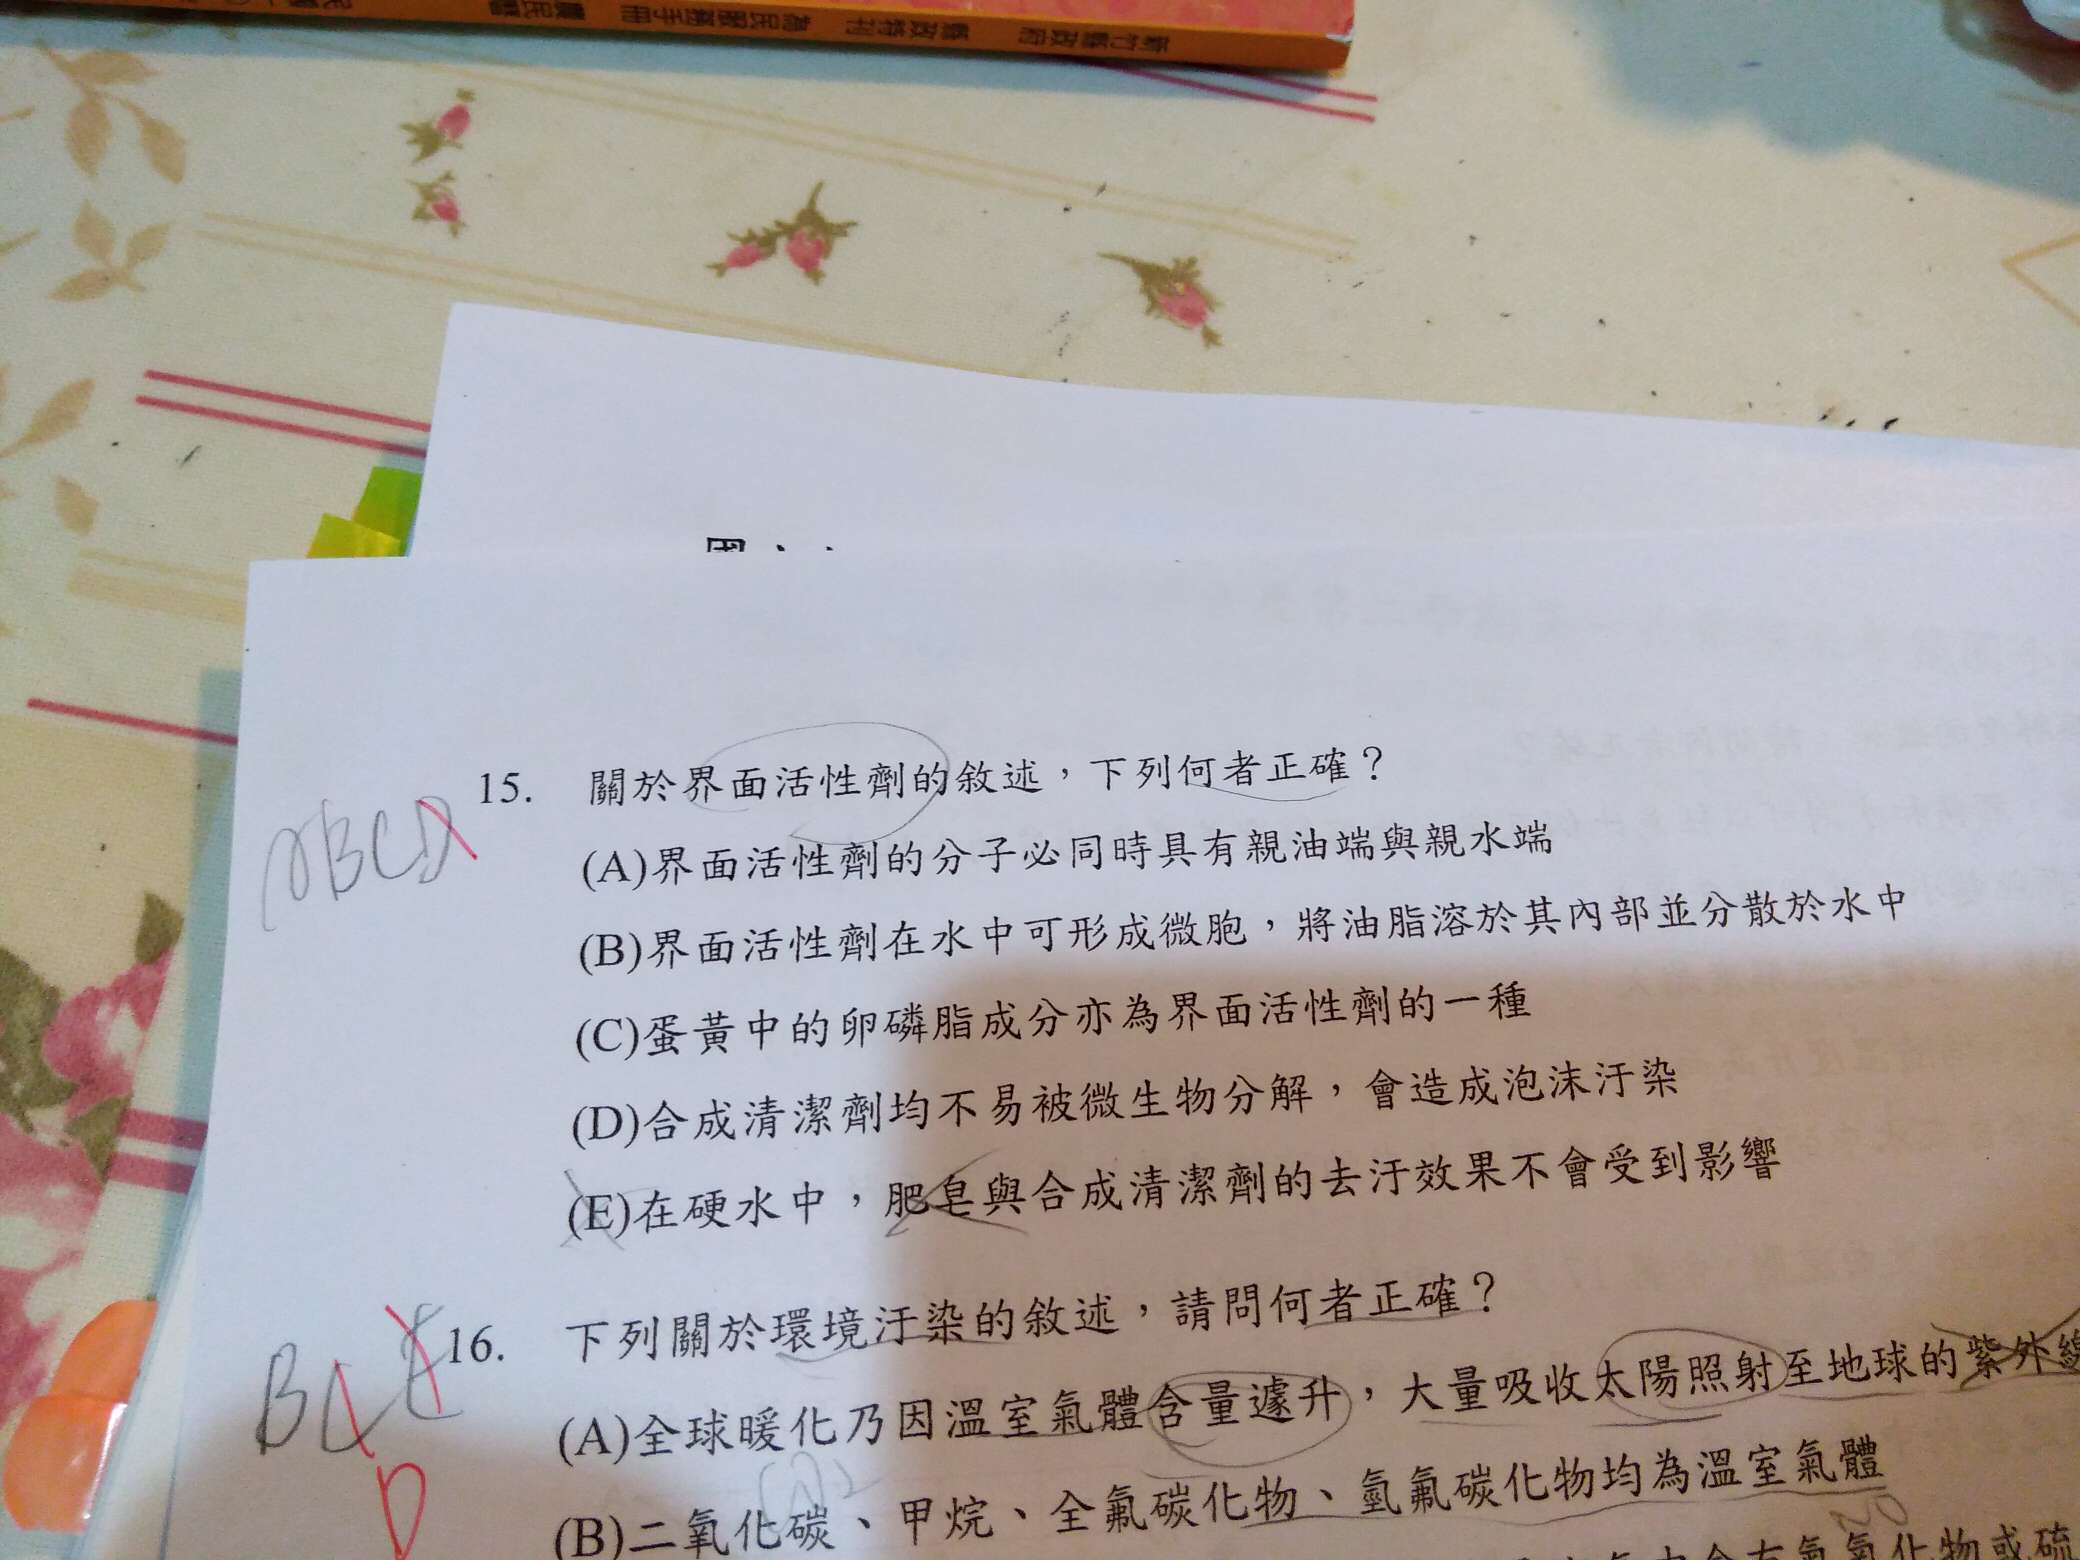 新竹縣政府 縣政特刊 為民服務手冊 農民曆
15. 關於界面活性劑的敘述，下列何者正確？
ABCD
(A)界面活性劑的分子必同時具有親油端與親水端
(B)界面活性劑在水中可形成微胞，將油脂溶於其內部並分散於水中
(C)蛋黃中的卵磷脂成分亦為界面活性劑的一種
(D)合成清潔劑均不易被微生物分解，會造成泡沫汙染
(E)在硬水中，肥皂與合成清潔劑的去汙效果不會受到影響
16. 下列關於環境汙染的敘述，請問何者正確？
BCE
D
(A)全球暖化乃因溫室氣體含量遽升，大量吸收太陽照射至地球的紫外線
(B)二氧化碳、甲烷、全氟碳化物、氫氟碳化物均為溫室氣體